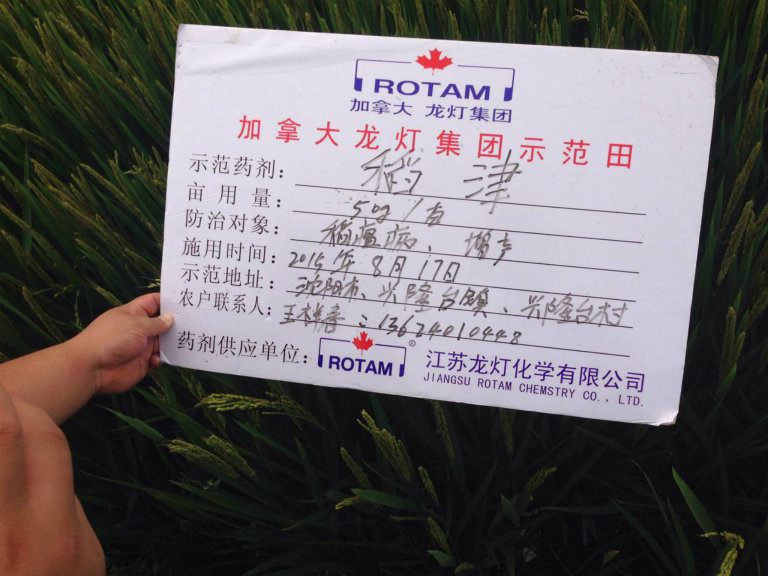 ROTAM
加拿大 龙灯集团
加拿大龙灯集团示范田
示范药剂: 稻津
亩用量: 50g/亩
防治对象: 稻瘟病、增产
施用时间: 2015年8月17日
示范地址: 沈阳市、兴隆台镇、兴隆台村
农户联系人: 王春:13624010448
药剂供应单位: ROTAM ® 江苏龙灯化学有限公司
JIANGSU ROTAM CHEMSTRY CO., LTD.